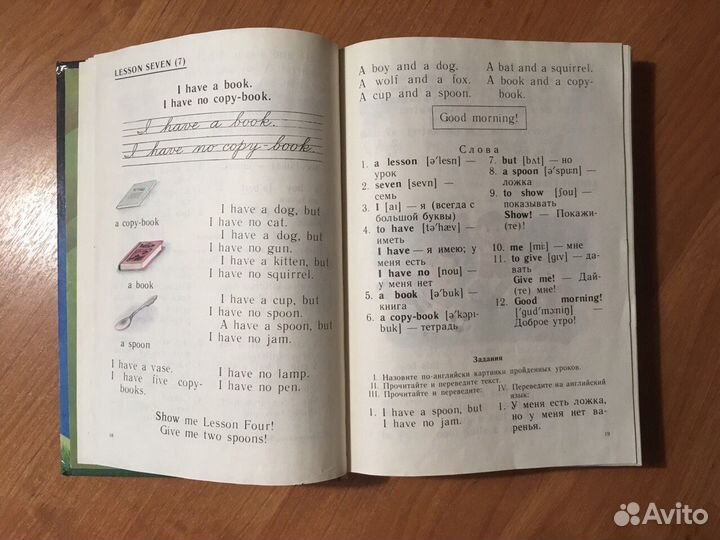 LESSON SEVEN (7)
I have a book.
I have no copy-book.
I have a book.
I have no copy-book.
a copy-book
a book
a spoon
I have a dog, but
I have no cat.
I have a dog, but
I have no gun.
I have a kitten, but
I have no squirrel.
I have a cup, but
I have no spoon.
A have a spoon, but
I have no jam.
I have a vase.
I have five copy-
books.
I have no lamp.
I have no pen.
Show me Lesson Four!
Give me two spoons!
18
A boy and a dog.
A wolf and a fox.
A cup and a spoon.
A bat and a squirrel.
A book and a copy-
book.
Good morning!
Слова
1. a lesson [ə'lesn] —
урок
2. seven [sevn] —
семь
3. I [aı] — я (всегда с
большой буквы)
4. to have [tə'hæv] —
иметь
I have — я имею; у
меня есть
I have no [nou] —
у меня нет
5. a book [ə'buk] —
книга
6. a copy-book [ə'kɔpı-
buk] — тетрадь
7. but [bʌt] — но
8. a spoon [ə'spu:n] —
ложка
9. to show [ʃou] —
показывать
Show! — Покажи-
(те)!
10. me [mi:] — мне
11. to give [gıv] — да-
вать
Give me! — Дай-
(те) мне!
12. Good morning!
['gud'mɔ:nıŋ] —
Доброе утро!
Задания
I. Назовите по-английски картинки пройденных уроков.
II. Прочитайте и переведите текст.
III. Прочитайте и переведите:
1. I have a spoon, but
I have no jam.
IV. Переведите на английский
язык:
1. У меня есть ложка,
но у меня нет ва-
ренья.
19
Avito